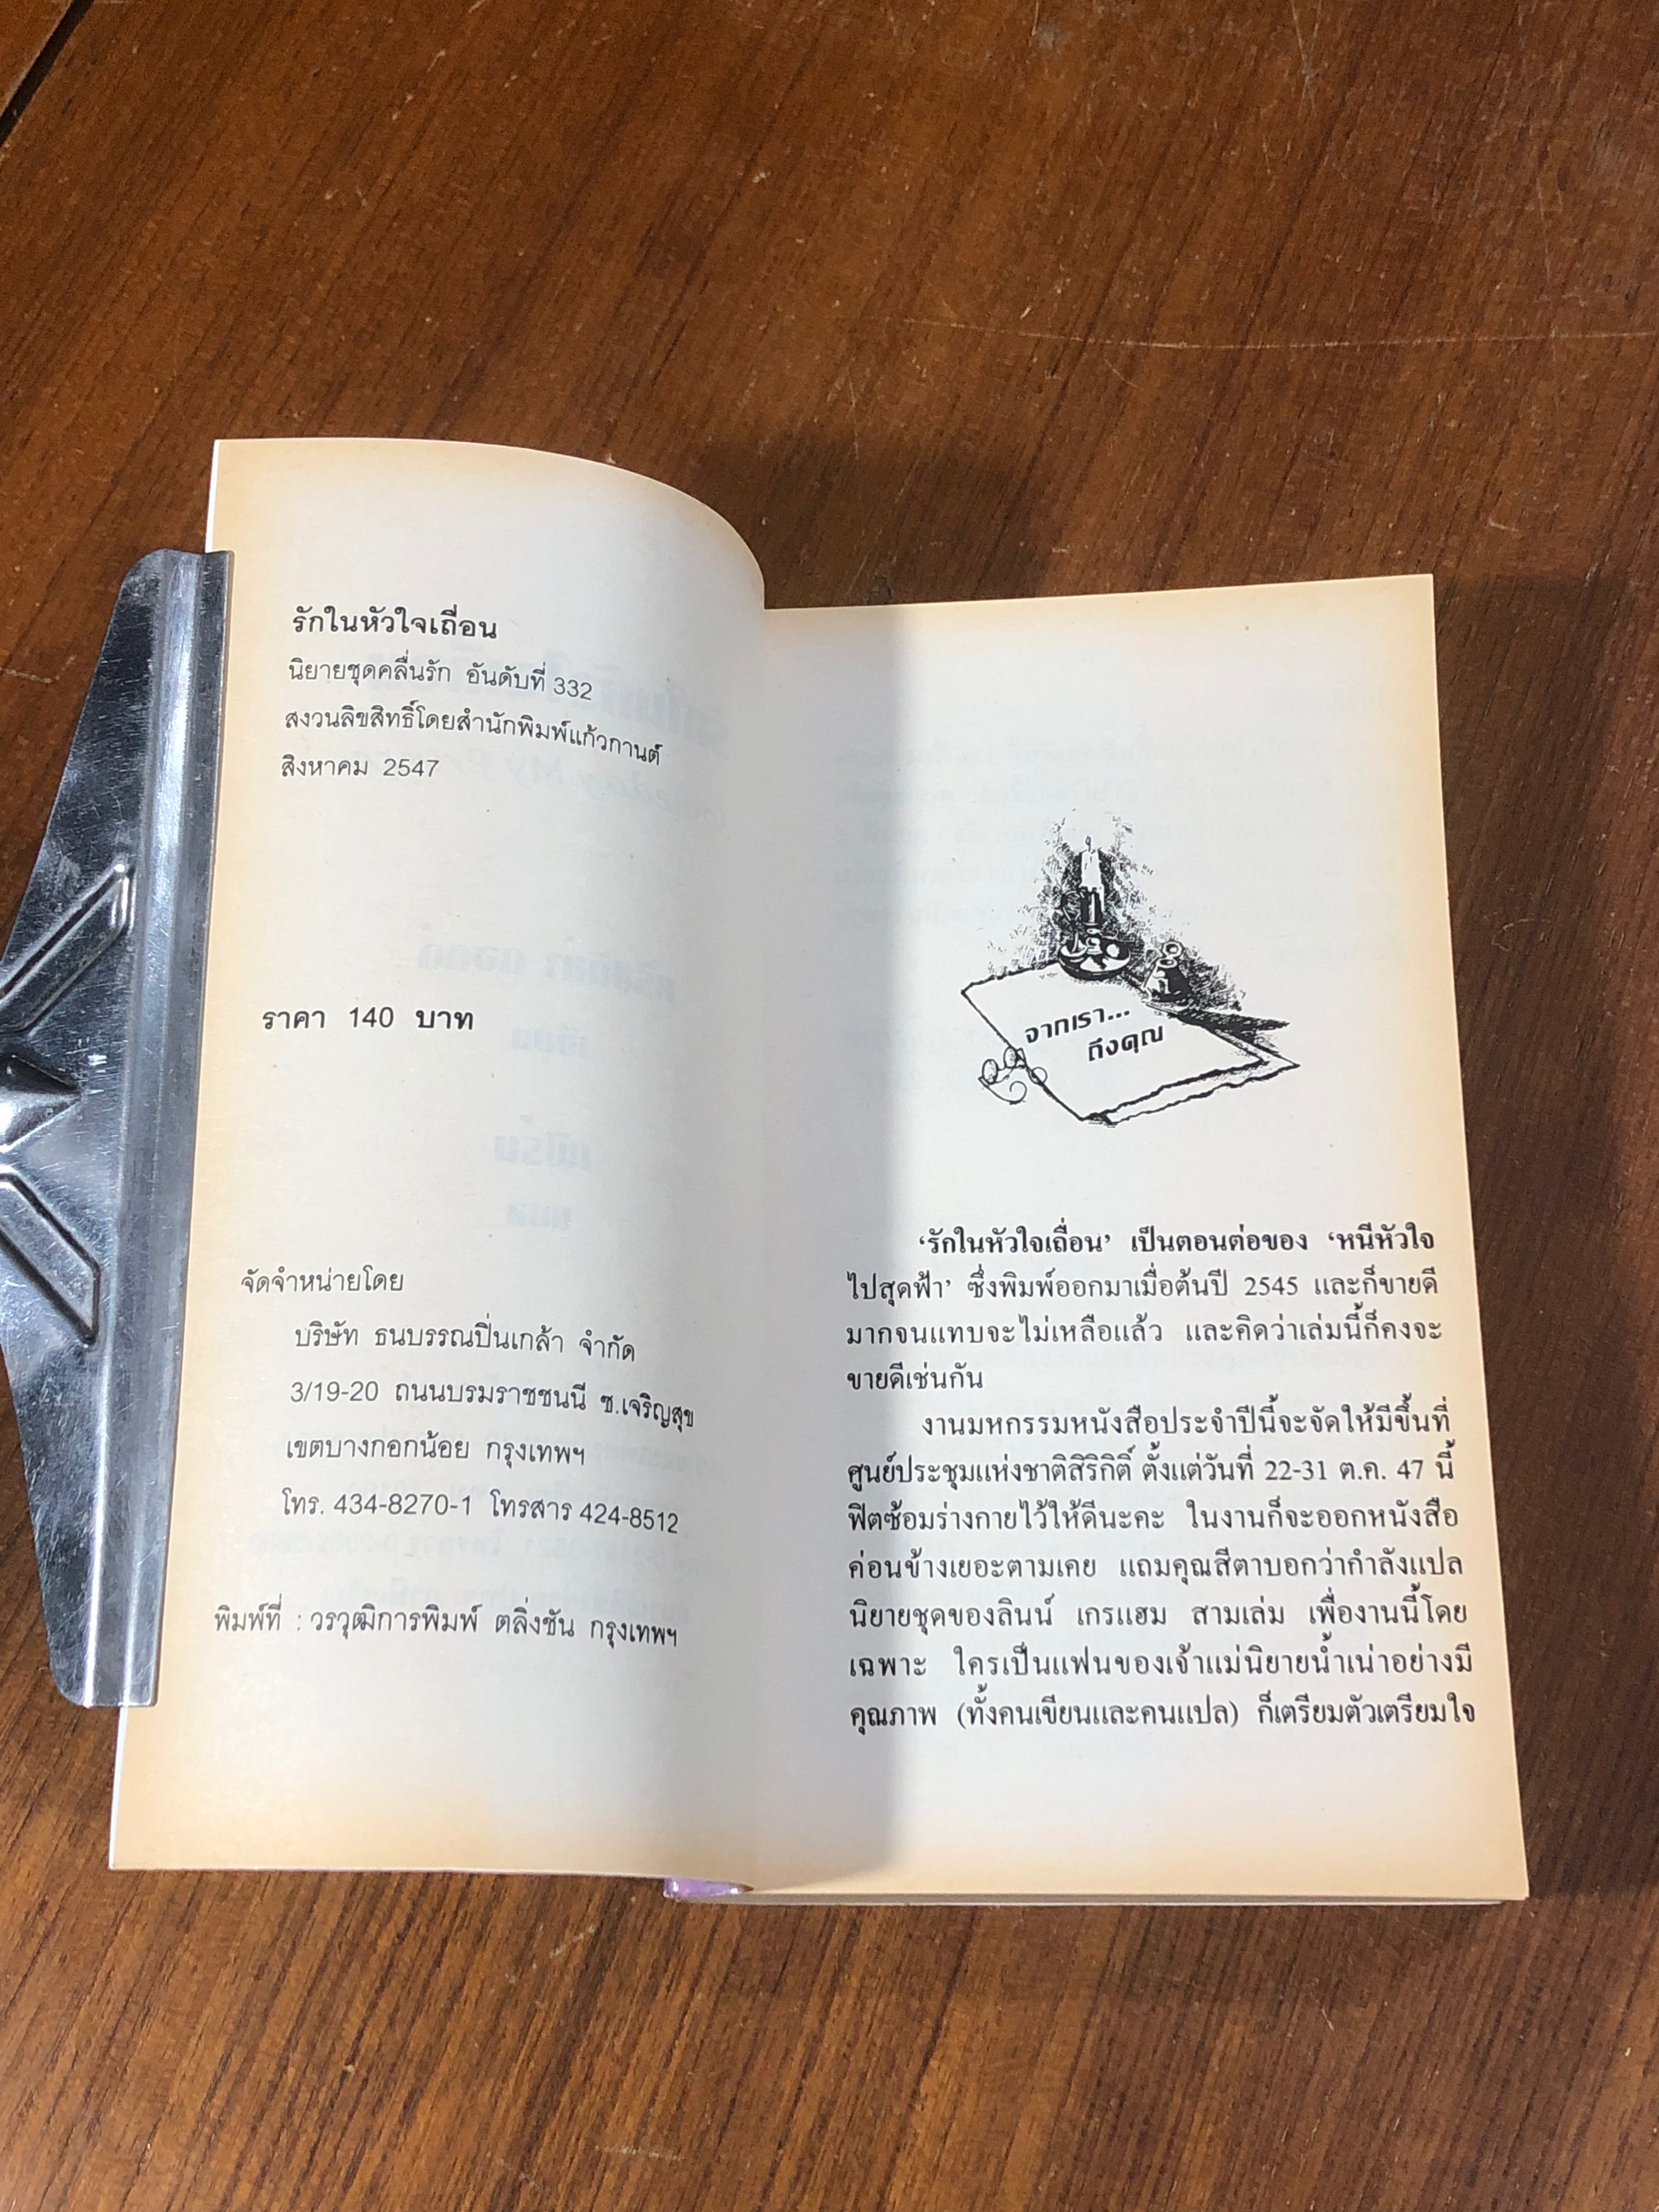 รักในหัวใจเถื่อน
นิยายชุดคลื่นรัก อันดับที่ 332
สงวนลิขสิทธิ์โดยสำนักพิมพ์แก้วกานต์
สิงหาคม 2547
ราคา 140 บาท
จัดจำหน่ายโดย
บริษัท ธนบรรณปิ่นเกล้า จำกัด
3/19-20 ถนนบรมราชชนนี ซ.เจริญสุข
เขตบางกอกน้อย กรุงเทพฯ
โทร. 434-8270-1 โทรสาร 424-8512
พิมพ์ที่ : วรวุฒิการพิมพ์ ตลิ่งชัน กรุงเทพฯ
จากเรา...
ถึงคุณ
‘รักในหัวใจเถื่อน’ เป็นตอนต่อของ ‘หนีหัวใจ
ไปสุดฟ้า’ ซึ่งพิมพ์ออกมาเมื่อต้นปี 2545 และก็ขายดี
มากจนแทบจะไม่เหลือแล้ว และคิดว่าเล่มนี้ก็คงจะ
ขายดีเช่นกัน
งานมหกรรมหนังสือประจำปีนี้จะจัดให้มีขึ้นที่
ศูนย์ประชุมแห่งชาติสิริกิติ์ ตั้งแต่วันที่ 22-31 ต.ค. 47 นี้
ฟิตซ้อมร่างกายไว้ให้ดีนะคะ ในงานก็จะออกหนังสือ
ค่อนข้างเยอะตามเคย แถมคุณสีตาบอกว่ากำลังแปล
นิยายชุดของลินน์ เกรแฮม สามเล่ม เพื่องานนี้โดย
เฉพาะ ใครเป็นแฟนของเจ้าแม่นิยายน้ำเน่าอย่างมี
คุณภาพ (ทั้งคนเขียนและคนแปล) ก็เตรียมตัวเตรียมใจ